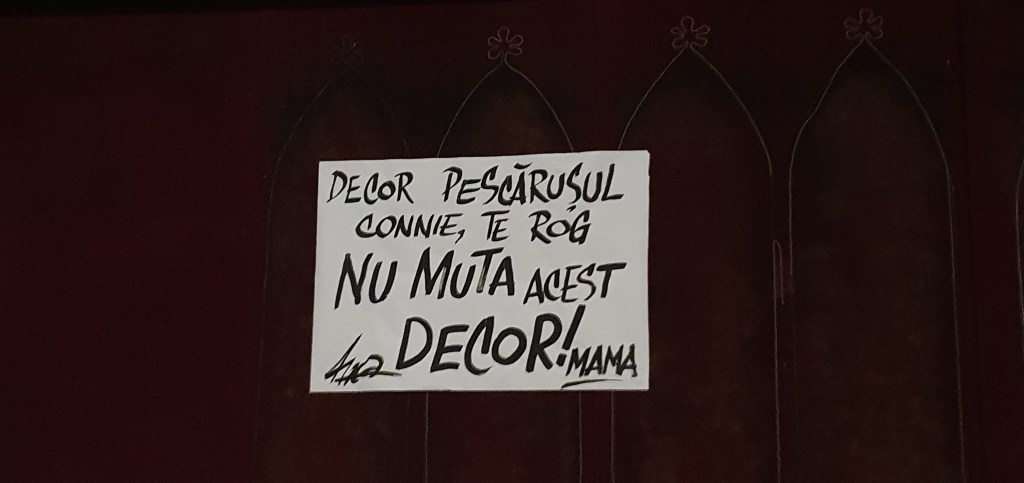 DECOR PESCĂRUȘUL
CONNIE, TE ROG
NU MUTA ACEST
DECOR! MAMA